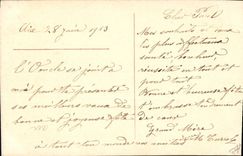 Aix 28 Juin 1913
L'Oncle se joint à
moi pour te présenter
ses meilleurs vœux de
bonne et joyeuse fête
Cher Paul
Mes souhaits à toi
les plus affectueux
santé, bonheur
réussite en tout et
pour tout
Bonne et heureuse fête
t'embrasse tendrement
de cœur
Grand Mère
à tout ton monde